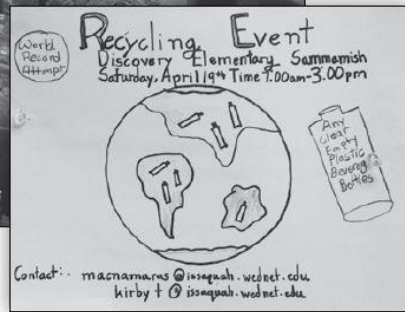 World
Record
Attempt
Recycling Event
Discovery Elementary Sammamish
Saturday, April 19th Time 9.00am-3.00pm
Any
Clear
Empty
Plastic
Beverage
Bottles
Contact: macnamaras@issaquah.wednet.edu
kirby t @ issaquah.wednet.edu